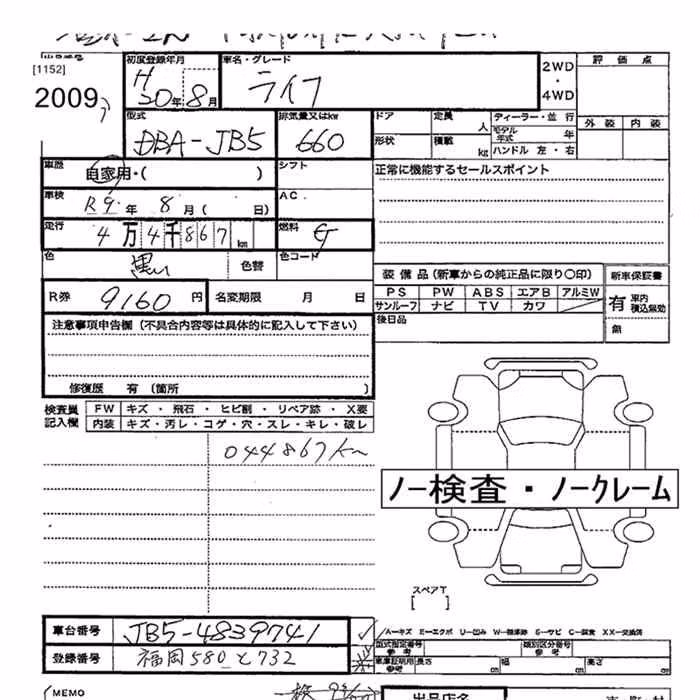 [1152]
2009
初度登録年月
H
20年8月
車名・グレード
ライフ
2WD
・
4WD
評価点
外装 内装
型式
DBA-JB5
排気量又はkw
660
ドア
定員
人
形状
積載
kg
ディーラー・並行
モデル年式 年
ハンドル 左・右
車歴
自家用・( )
シフト
正常に機能するセールスポイント
車検
R9年 8月( 日)
AC
走行
4万4千867km
燃料
G
色
黒
色替
色コード
R券 9160円
名変期限 月 日
装備品(新車からの純正品に限り○印)
PS PW ABS エアB アルミW
サンルーフ ナビ TV カワ
後日品
新車保証書
有 車内積込無効
無
注意事項申告欄(不具合内容等は具体的に記入して下さい)
修復歴 有(箇所 )
検査員記入欄
FW キズ・飛石・ヒビ割・リペア跡・X要
内装 キズ・汚レ・コゲ・穴・スレ・キレ・破レ
044867km
ノー検査・ノークレーム
スペアT
[ ]
車台番号 JB5-4839741
登録番号 福岡580と732
A―キズ E―エクボ U―凹み W―補修跡 S―サビ C―腐食 XX―交換済
型式指定番号
参考
類別区分番号
参考
車庫証明用
参考
長さ cm 幅 cm 高さ cm
MEMO
出品店名